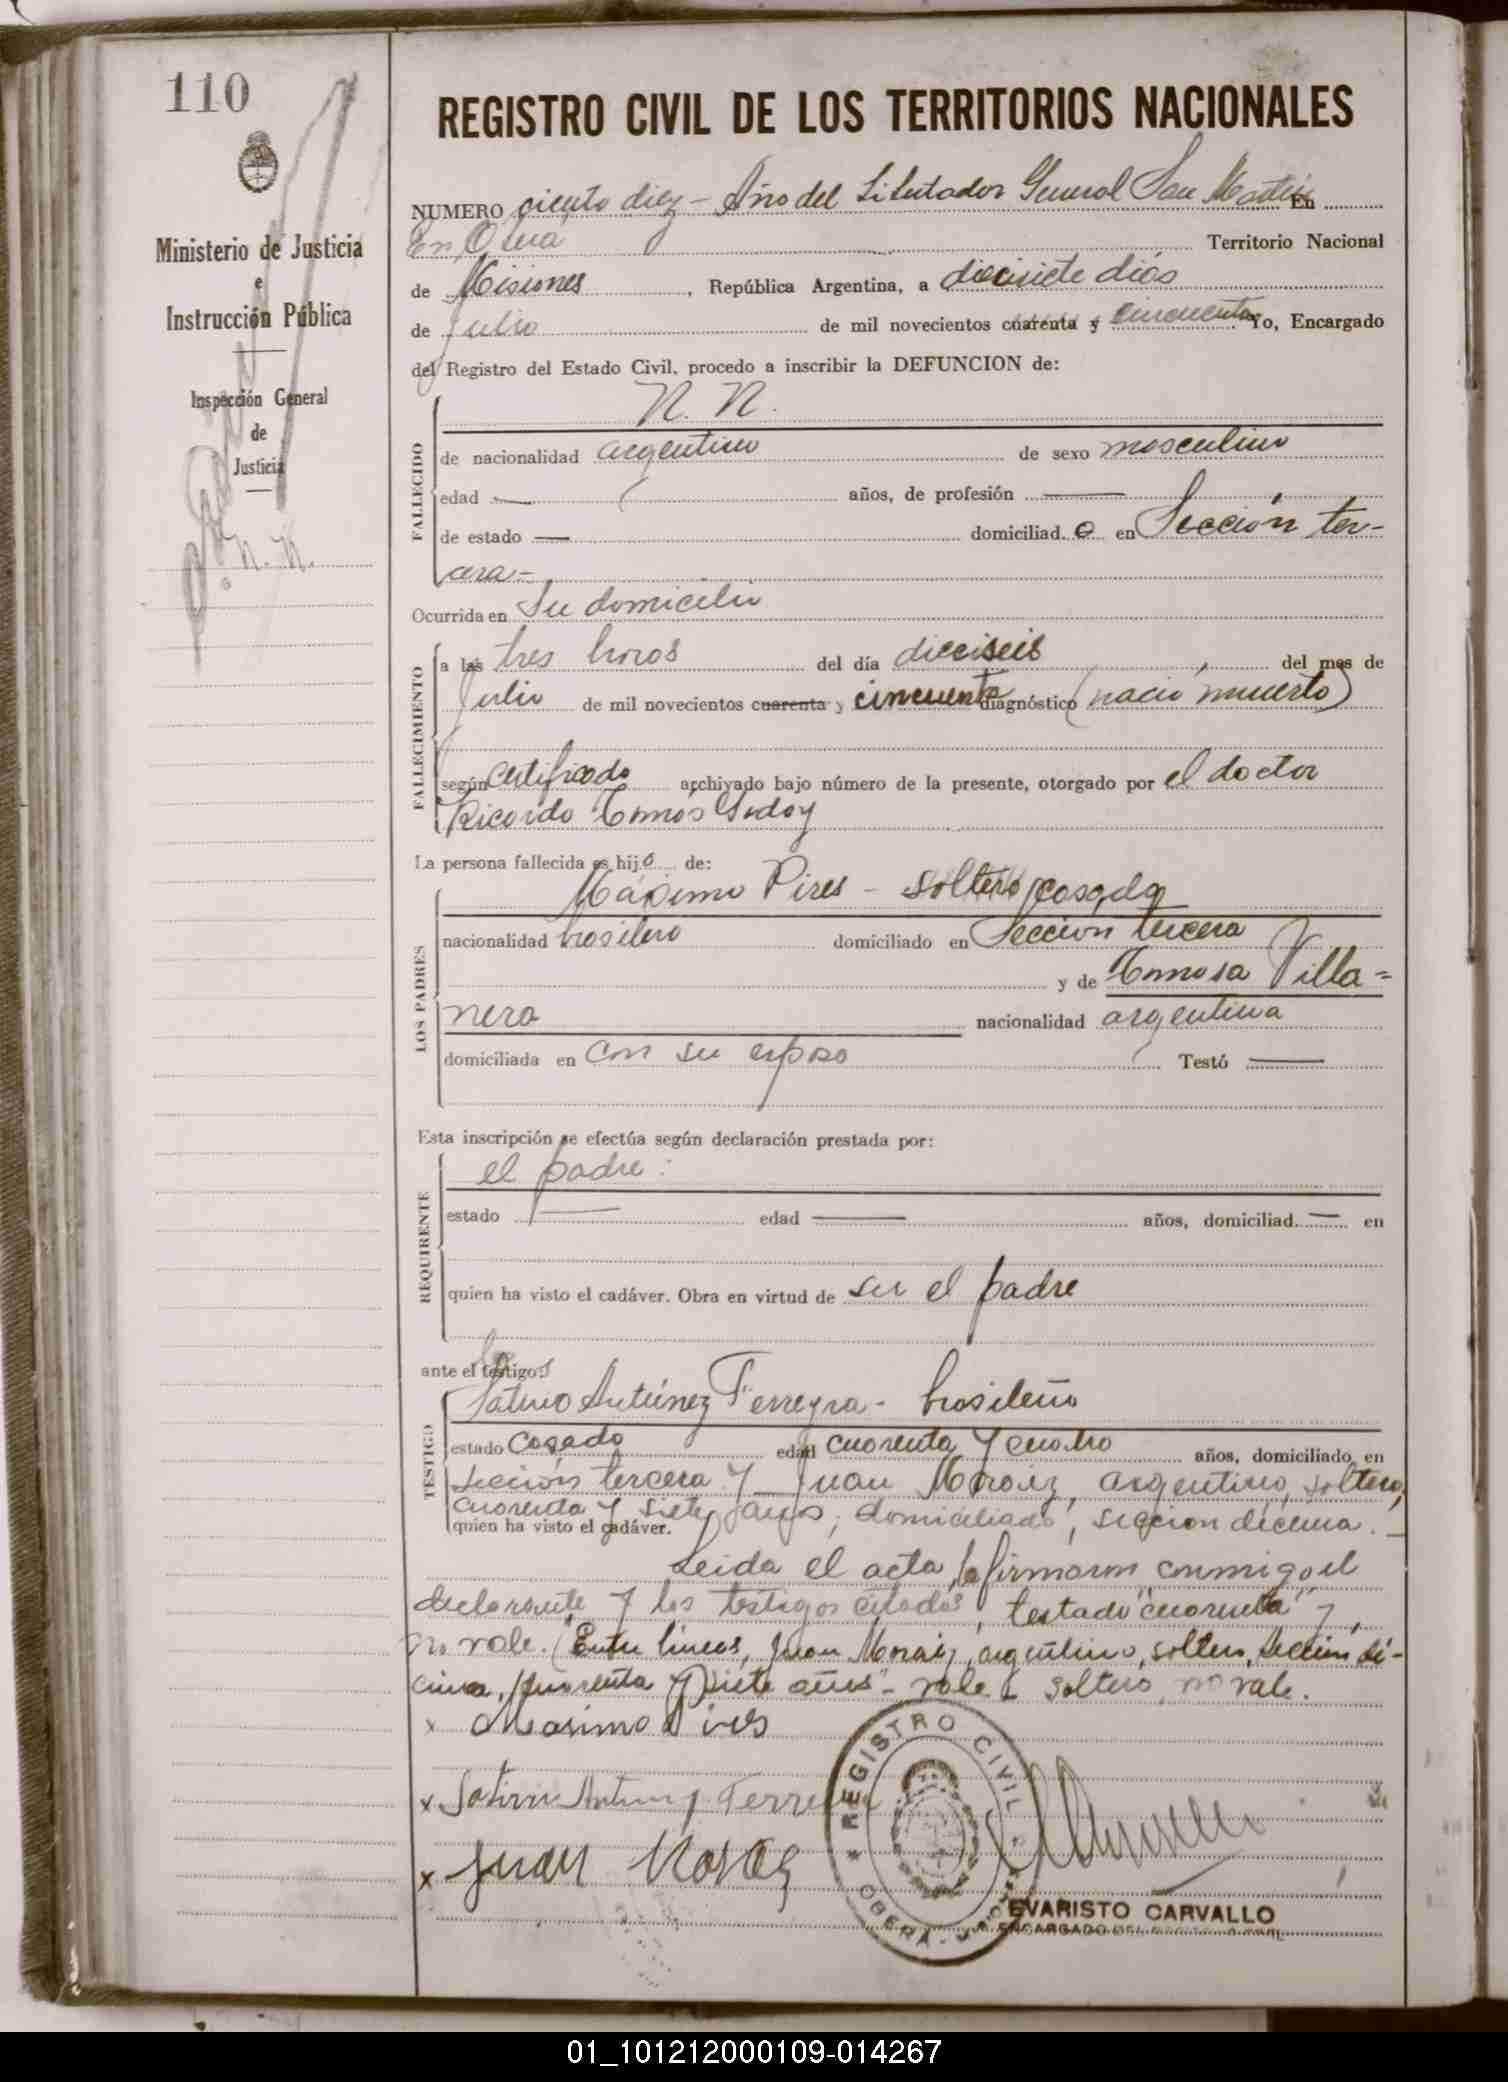 110
REGISTRO CIVIL DE LOS TERRITORIOS NACIONALES
Ministerio de Justicia
e
Instrucción Pública
Inspección General
de
Justicia
N. N.
NUMERO ciento diez - Año del Libertador General San Martín En
En Oberá Territorio Nacional
de Misiones, República Argentina, a diecisiete días
de Julio de mil novecientos cuarenta y cincuenta. Yo, Encargado
del Registro del Estado Civil, procedo a inscribir la DEFUNCION de:
N. N.
FALLECIDO
de nacionalidad argentino de sexo masculino
edad — años, de profesión —
de estado — domiciliad o en Sección ter-
cera-
Ocurrida en Su domicilio
FALLECIMIENTO
a las tres horas del día dieciseis del mes de
Julio de mil novecientos cuarenta y cincuenta diagnóstico (nació muerto)
según certificado archivado bajo número de la presente, otorgado por el doctor
Ricardo Tomás Godoy
La persona fallecida es hijo de:
LOS PADRES
Máximo Pires - soltero casado
nacionalidad brasilero domiciliado en Sección tercera
y de Tomasa Villa=
nera nacionalidad argentina
domiciliada en con su esposo Testó —
Esta inscripción se efectúa según declaración prestada por:
REQUIRENTE
el padre:
estado — edad — años, domiciliad — en
quien ha visto el cadáver. Obra en virtud de ser el padre
ante el testigo:
TESTIGO
Antúnez Ferreyra - brasileño
estado Casado edad cuarenta y cuatro años, domiciliado en
Sección tercera y Juan Moraiz, argentino, soltero,
cuarenta y siete años, domiciliado, sección décima. —
quien ha visto el cadáver.
Leida el acta, la firmaron conmigo el
declarante y los testigos citados, testado "cuarenta" y,
no vale. Entre líneas, Juan Moraiz, argentino, soltero, Sección dé-
cima, cuarenta y siete años"- vale - soltero, no vale.
x Masimo Pires
x Antun Ferre
x Juan
* REGISTRO CIVIL * OBERA
EVARISTO CARVALLO
ENCARGADO DEL REGISTRO CIVIL
01_101212000109-014267